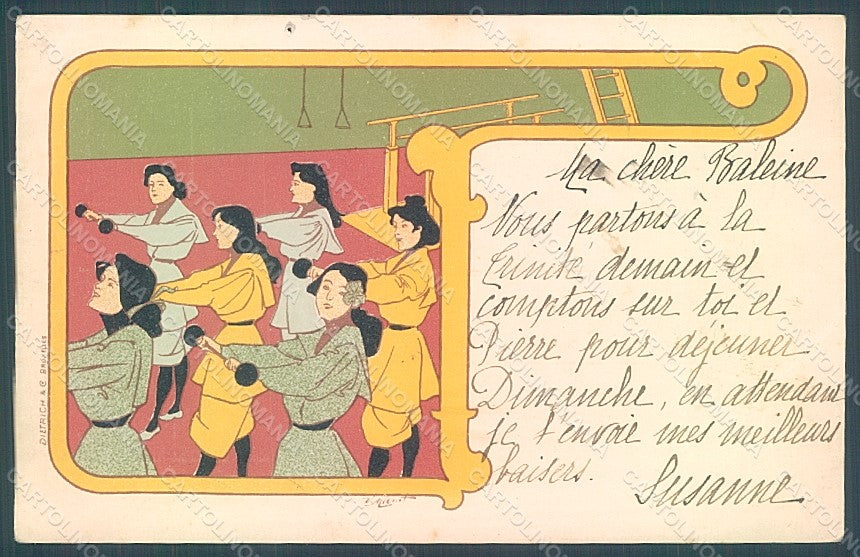 Ma chère Baleine
Nous partons à la
Trinité demain et
comptons sur toi et
Pierre pour déjeuner
Dimanche, en attendant
je t'envoie mes meilleurs
baisers.
Susanne
DIETRICH & Cº BRUXELLES
CARTOLINOMANIA